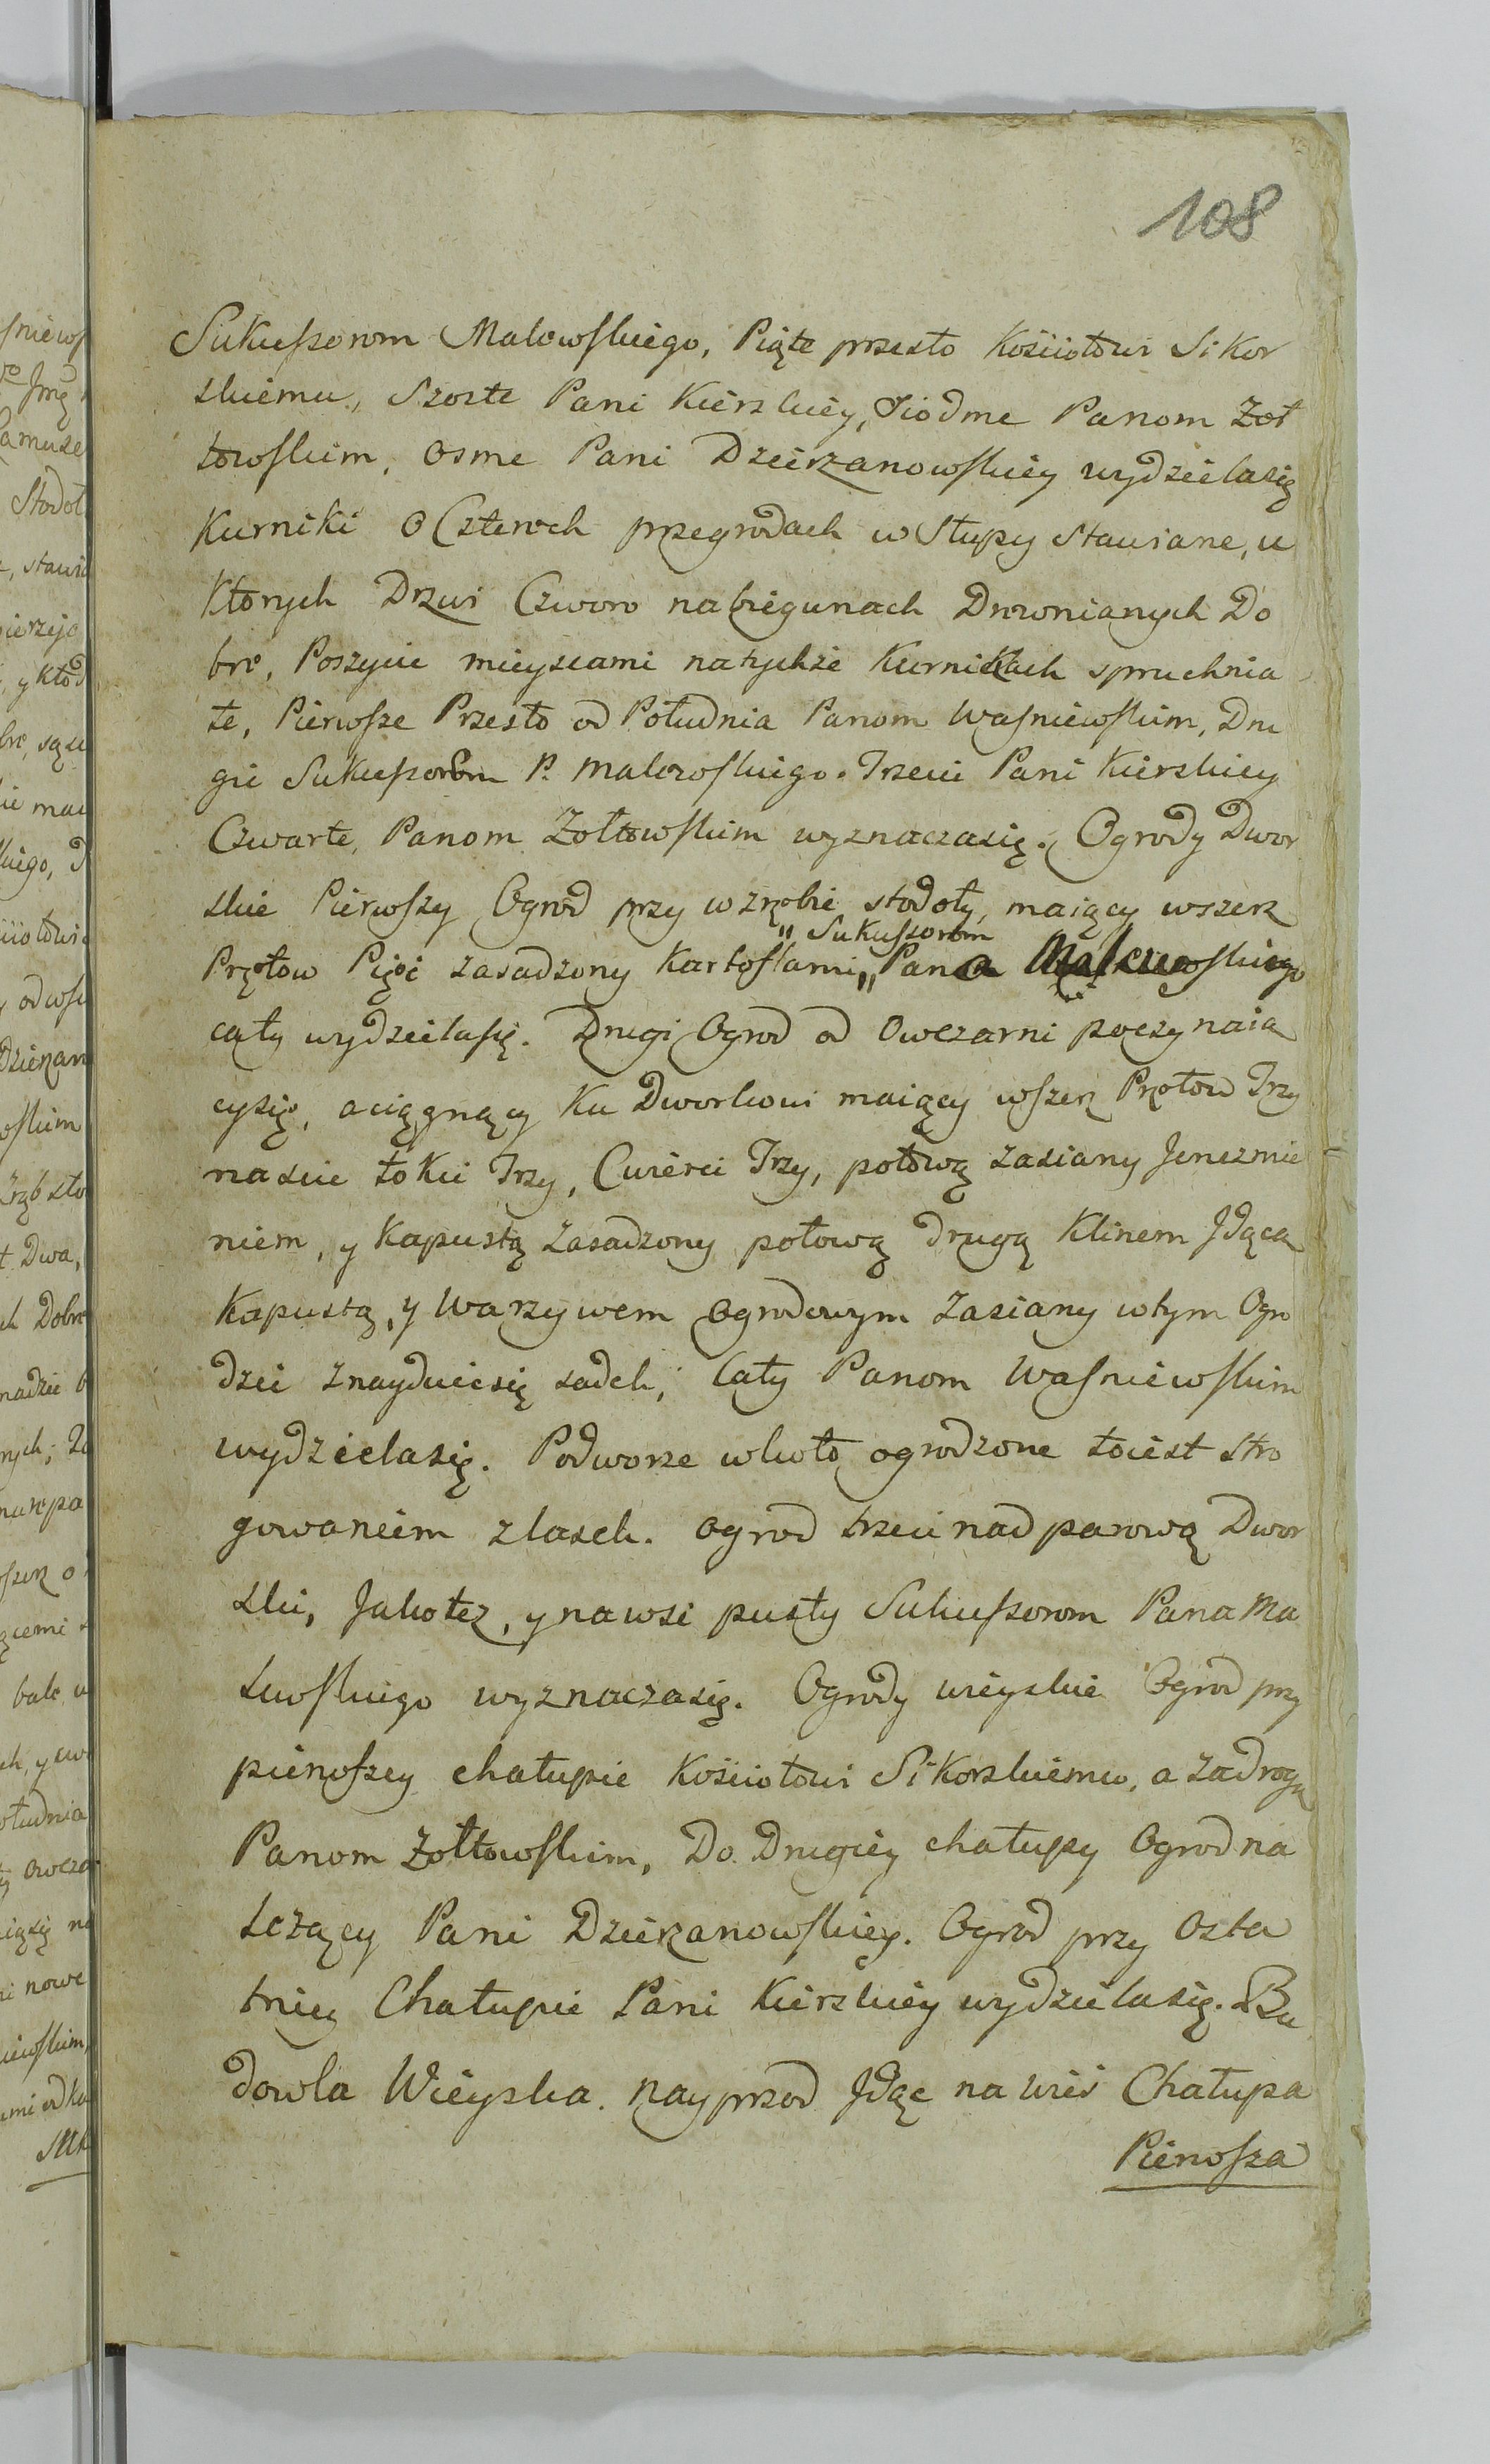 108
Sukussorom Malewskiego, Piąte przesło Kościołowi Sikor
skiemu, Szoste Pani Kierskiey, Siodme Panom Zoł
towskim, Osme Pani Dzierzanowskiey wydzielasię
Kurniki o Czterech przegrodach w Słupy stawiane, u
Ktorych Drzwi Czworo nabiegunach Drewnianych Do
bre, Poszycie mieyscami natychże Kurnikach spruchnia
łe, Pierwsze Przesło od Południa Panom Wasniewskim, Dru
gie Sukussorom P. Malewskiego. Trzecie Pani Kierskiey
Czwarte, Panom Zołtowskim wyznaczasię. Ogrody Dwor
skie Pierwszy Ogrod przy wzrębie stodoły, maiący wszerz
" Sukussorom
Prętow Pięć zasadzony Kartoflami " Pana Malewskiego
cały wydzielasię. Drugi Ogrod od Owczarni poczynaią
cysię, aciągnący Ku Dworkowi maiący wszerz Prętow Trzy
nascie łokci Trzy, Cwierci Trzy, połową zasiany Jenczmie
niem, y Kapustą zasadzony połową drugą Klinem Jdącą
Kapustą, y Warzywem ogrodowym zasiany wtym Ogro
dzie znayduiesię sadek, Cały Panom Wasniewskim
wydzielasię. Podworze wkoło ogrodzone toiest stro
gowaniem zlasek. Ogrod trzeci nad parową Dwor
ski, Jakotez, y nawsi pusty Sukussorom Pana Ma
lewskiego wyznaczasię. Ogrody wieyskie Ogrod przy
pierwszey chałupie Kościołowi Sikorskiemu, a zadrogą
Panom Zołtowskim, Do Drugiey chałupy Ogrod na
leżący Pani Dzierzanowskiey. Ogrod przy Osta
tniey Chałupie Pani Kierskiey wydzielasię. Bu
dowla Wieyska. nayprzod Jdąc na wieś Chałupa
Pierwsza